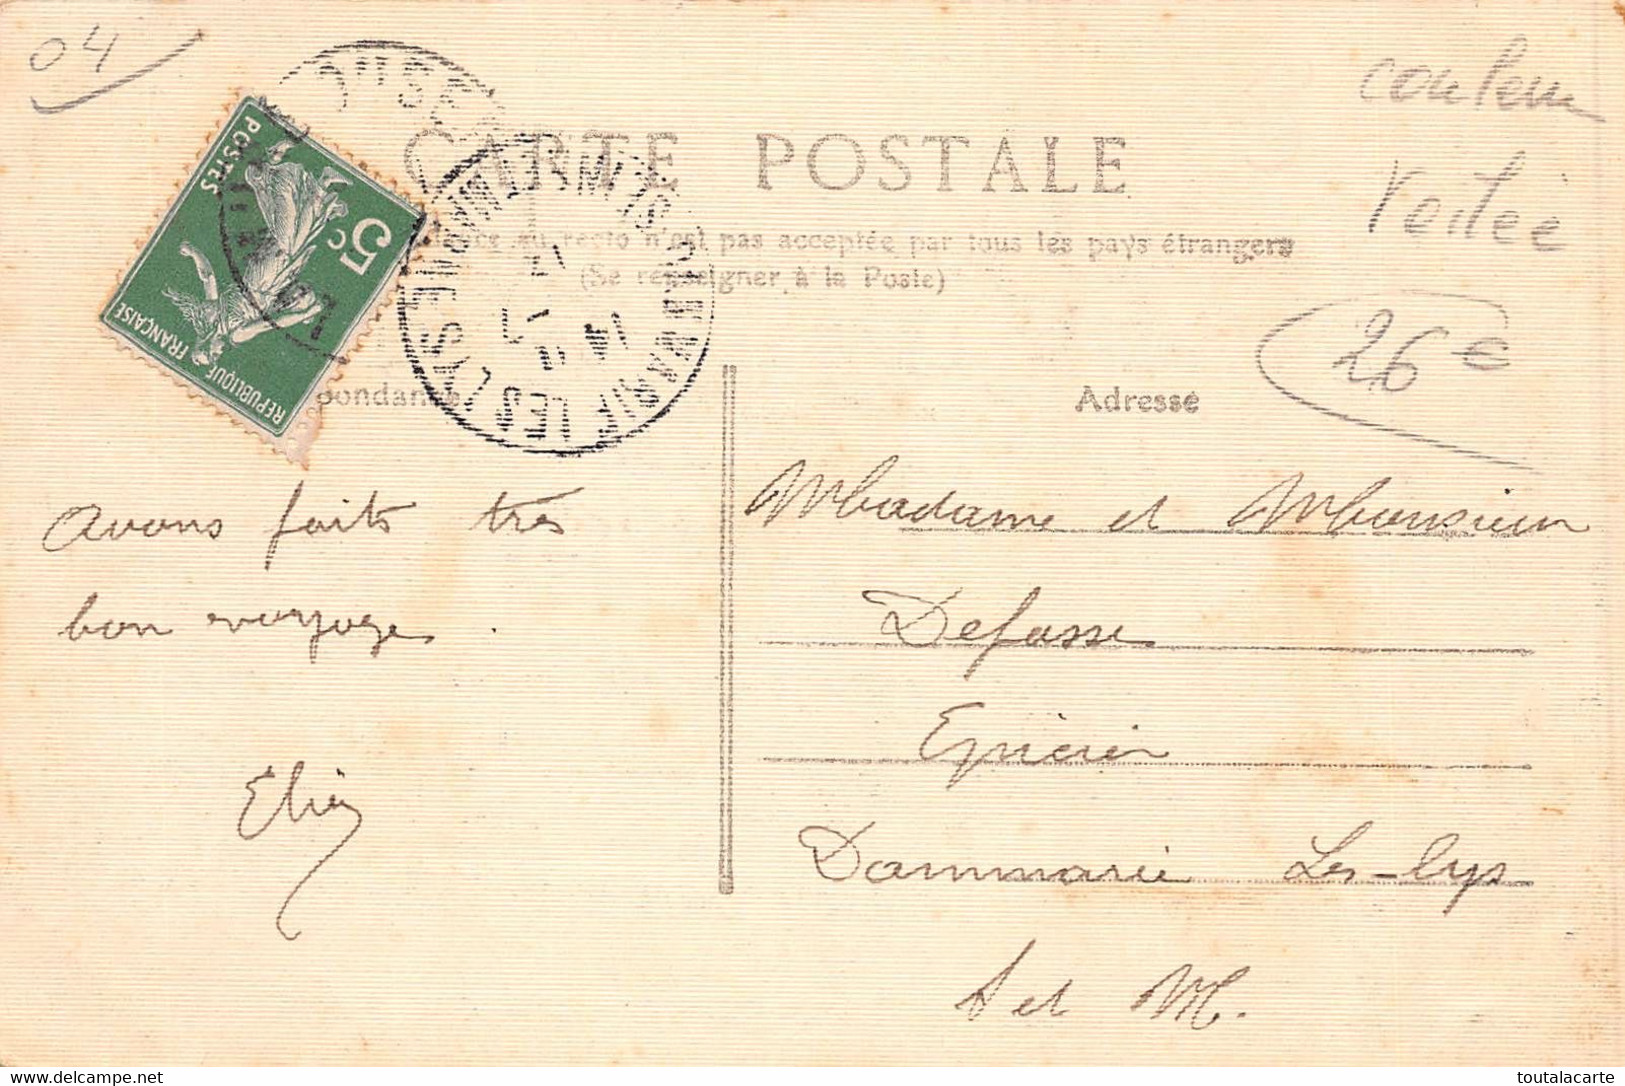 04
couleur
toilée
26 €
CARTE POSTALE
au recto n'est pas acceptée par tous les pays étrangers
(Se renseigner à la Poste)
POSTES
5c
REPUBLIQUE FRANÇAISE
LES LYS
pondance
Adresse
avons faits très
bon voyage.
Madame et Monsieur
Defosse
Epicier
Dammarie Les-Lys
S et M.
toutalacarte